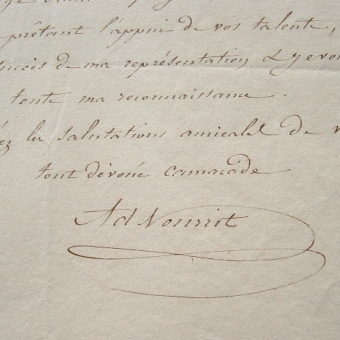 prêtant l'appui de vos talents,
succès de ma représentation &
toute ma reconnaissance.
les salutations amicales de
tout dévoué camarade
Ad Nourrit